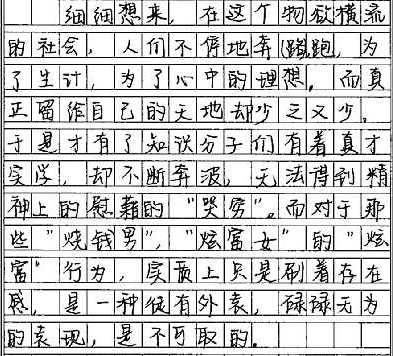 细细想来，在这个物欲横流
的社会，人们不停地奔蹦跑，为
了生计，为了心中的理想。而真
正留给自己的天地却少之又少。
于是才有了知识分子们有着真才
实学，却不断奔波，无法得到精
神上的慰藉的“哭穷”。而对于那
些“烧钱男”，“炫富女”的“炫
富”行为，实质上只是刷着存在
感，是一种徒有外表，碌碌无为
的表现，是不可取的。